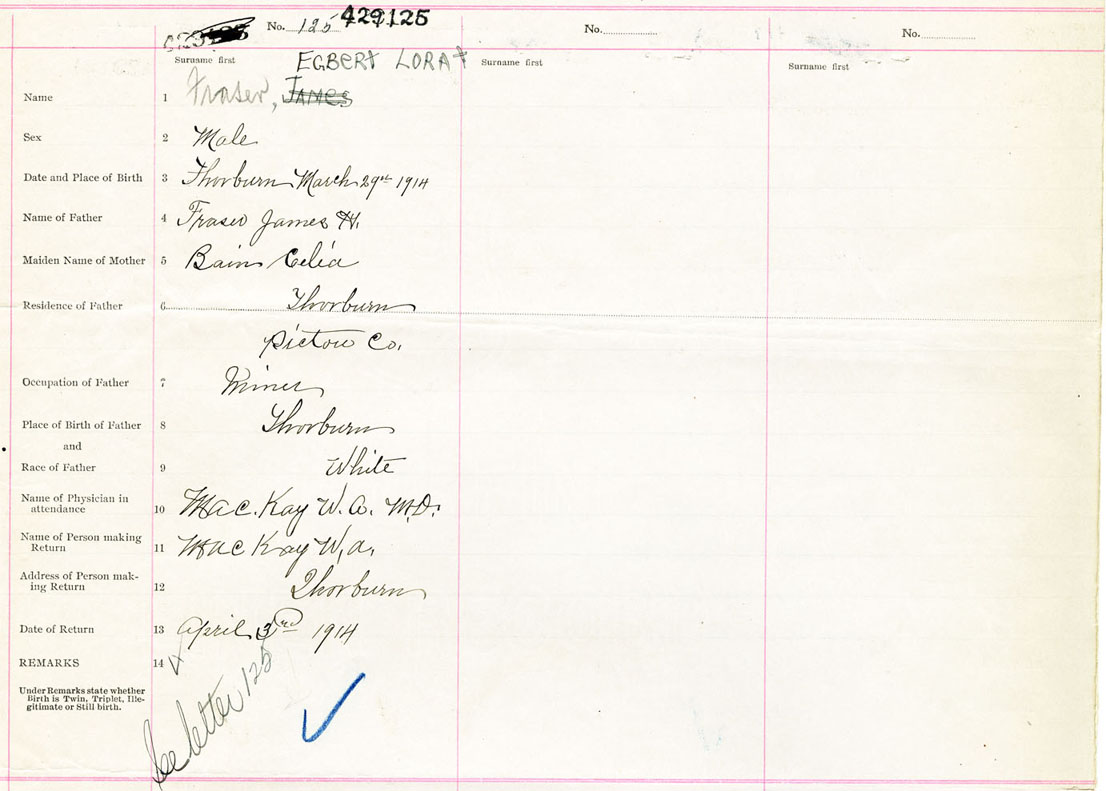 No. 125 429125
No.
No.
Surname first EGBERT LORA
Surname first
Surname first
Name 1 Fraser, JAMES
Sex 2 Male
Date and Place of Birth 3 Thorburn March 29th 1914
Name of Father 4 Fraser James H.
Maiden Name of Mother 5 Bain Celia
Residence of Father 6 Thorburn
Pictou Co.
Occupation of Father 7 Miner
Place of Birth of Father 8 Thorburn
and
Race of Father 9 White
Name of Physician in
attendance 10 MacKay W. A. M.D.
Name of Person making
Return 11 MacKay W. A.
Address of Person mak-
ing Return 12 Thorburn
Date of Return 13 April 3rd 1914
REMARKS 14
Under Remarks state whether
Birth is Twin, Triplet, Ille-
gitimate or Still birth.
See letter 125